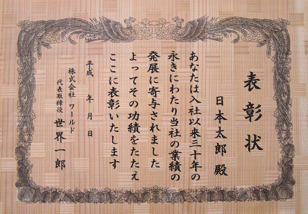 表彰状
日本太郎 殿
あなたは入社以来三十年の
永きにわたり当社の業績の
発展に寄与されました
よってその功績をたたえ
ここに表彰いたします
平成 年 月 日
株式会社 ワールド
代表取締役 世界一郎